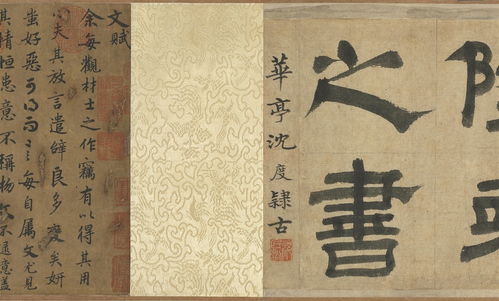 陸柬
之書
華亭沈度隸古
文賦
余每觀材士之作竊有以得其用
心夫其放言遣辭良多變矣妍
蚩好惡可得而言每自屬文尤見
其情恒患意不稱物文不逮意蓋